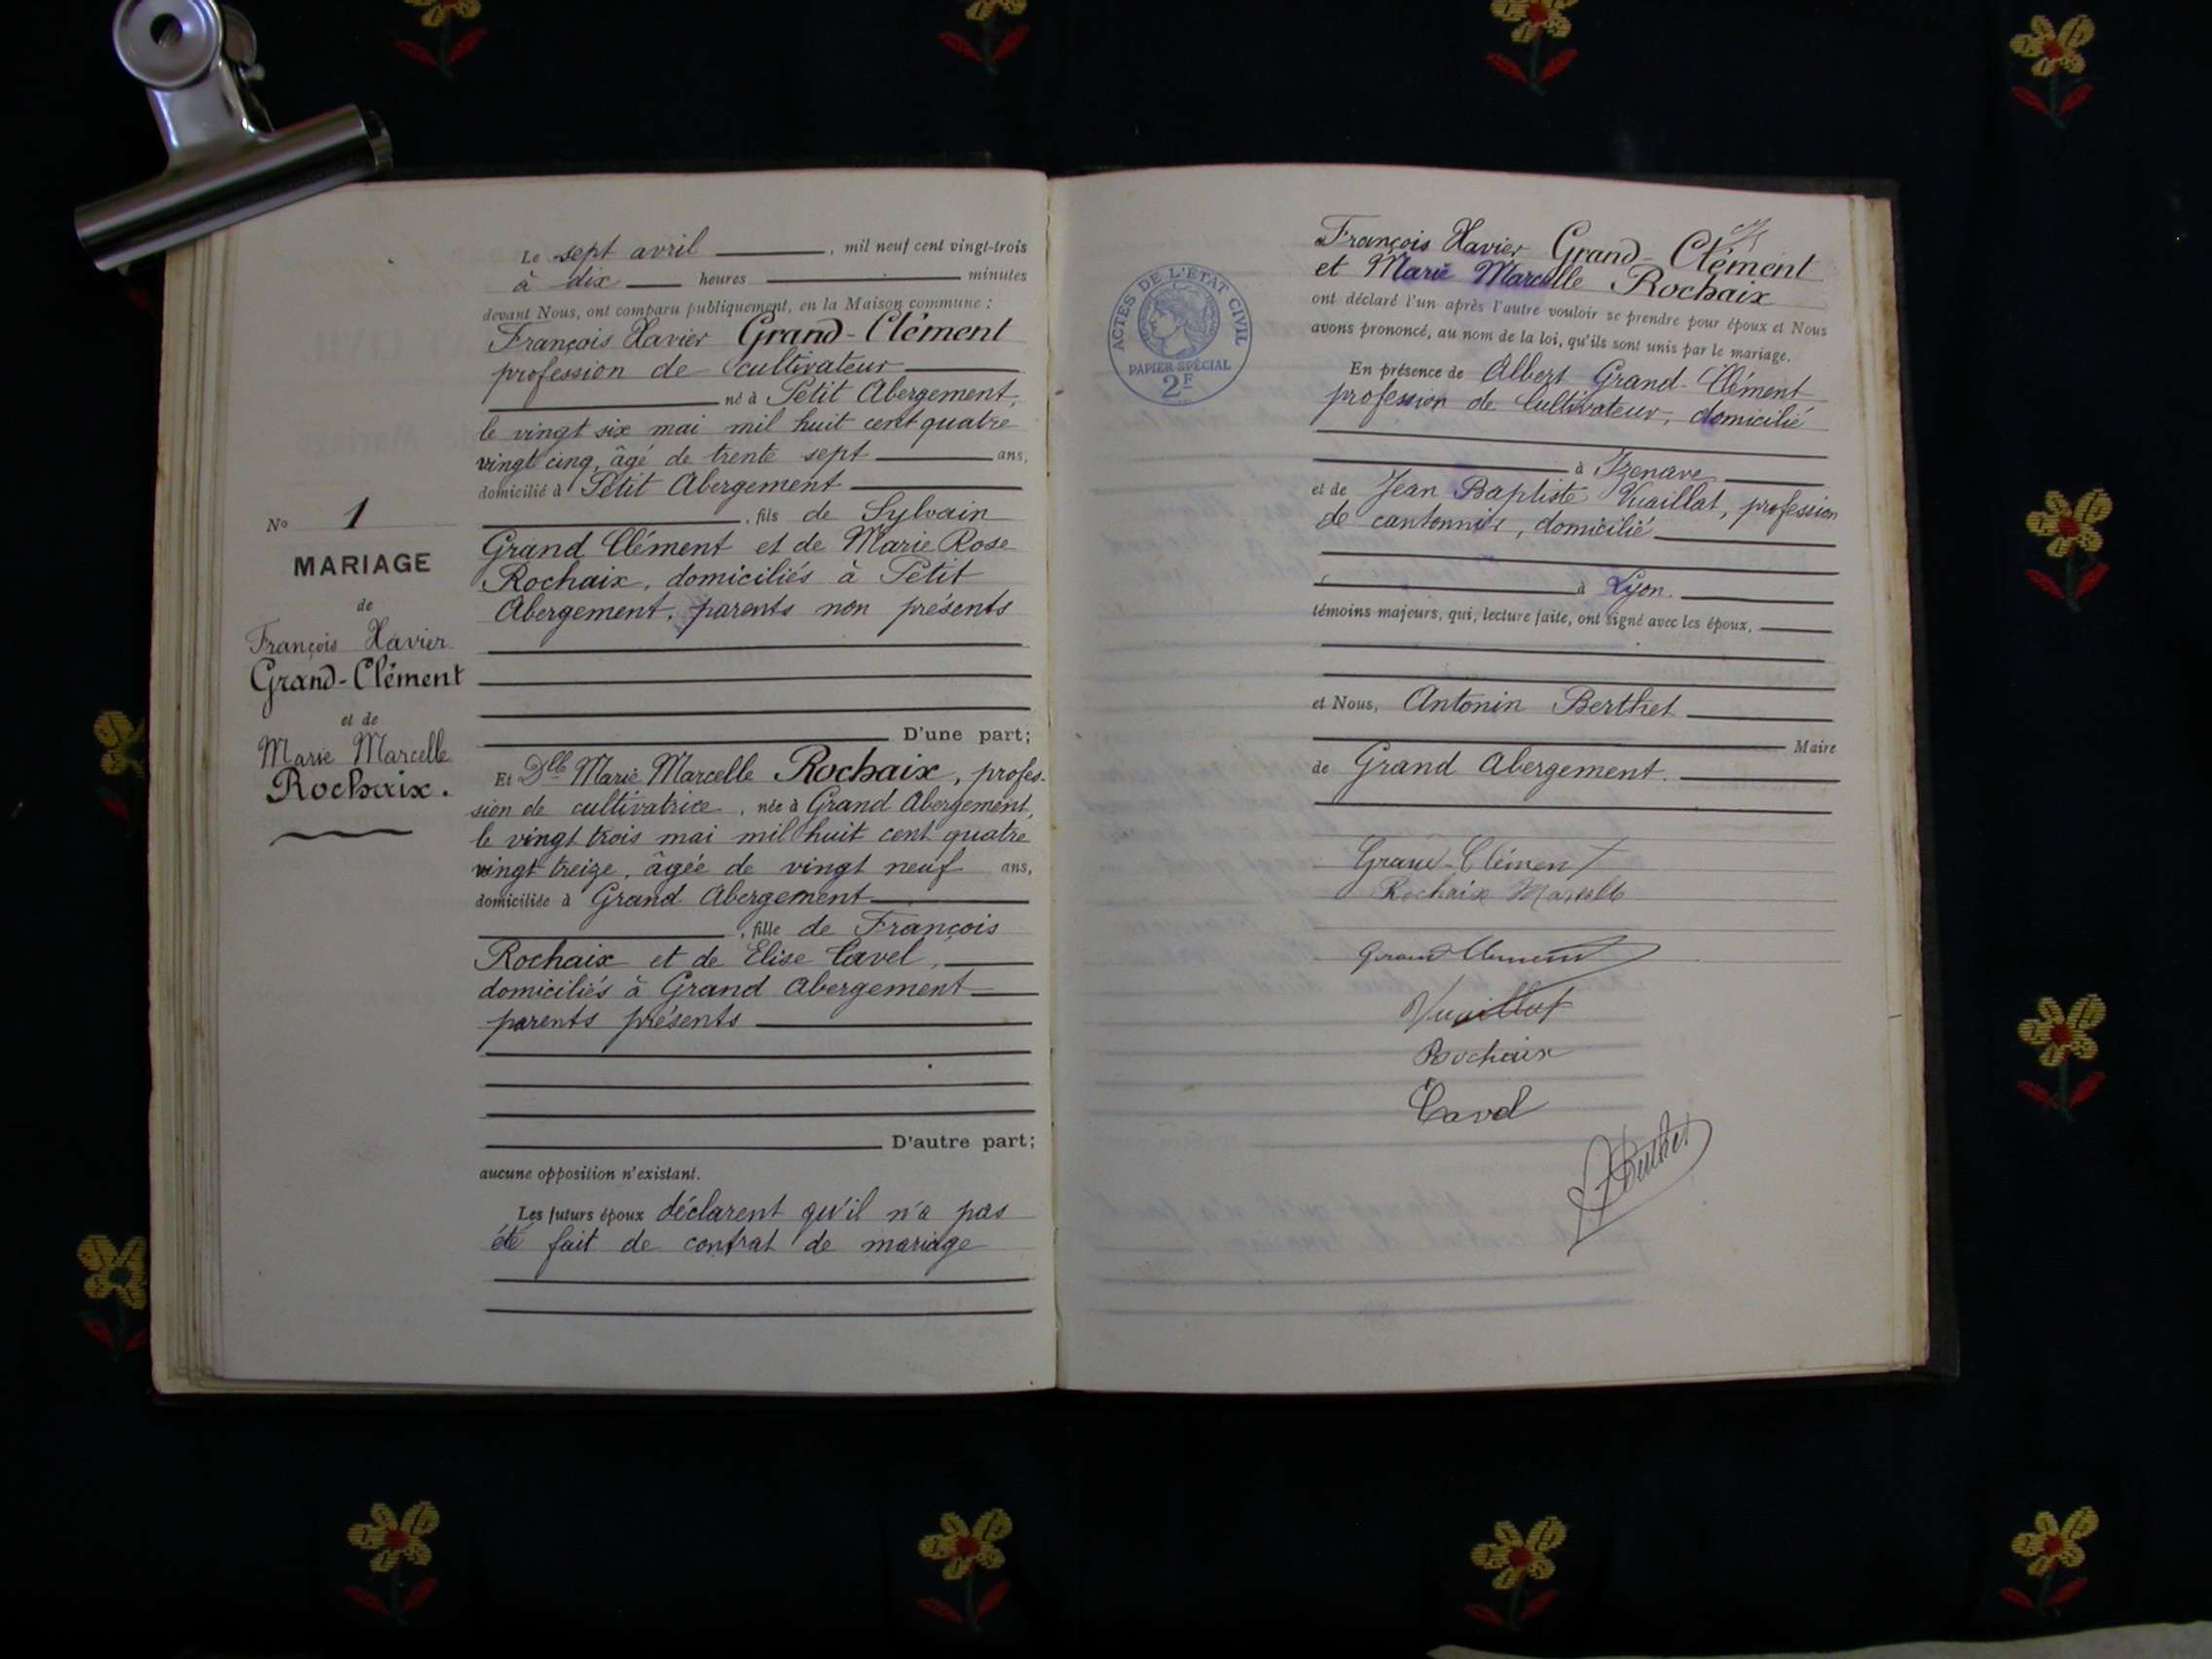 Le sept avril, mil neuf cent vingt-trois
à dix heures minutes
devant Nous, ont comparu publiquement, en la Maison commune :
François Xavier Grand-Clément
profession de cultivateur
né à Petit Abergement,
le vingt six mai mil huit cent quatre
vingt cinq, âgé de trente sept ans,
domicilié à Petit Abergement
, fils de Sylvain
Grand Clément et de Marie Rose
Rochaix, domiciliés à Petit
Abergement, parents non présents
D'une part;
No 1
MARIAGE
de
François Xavier
Grand-Clément
et de
Marie Marcelle
Rochaix.
Et Dlle Marie Marcelle Rochaix, profes-
sion de cultivatrice, née à Grand Abergement,
le vingt trois mai mil huit cent quatre
vingt treize, âgée de vingt neuf ans,
domiciliée à Grand Abergement
, fille de François
Rochaix et de Elise Cavel,
domiciliés à Grand Abergement
parents présents
D'autre part;
aucune opposition n'existant.
Les futurs époux déclarent qu'il n'a pas
été fait de contrat de mariage
ACTES DE L'ETAT CIVIL
PAPIER SPÉCIAL
2F
François Xavier Grand-Clément
et Marie Marcelle Rochaix
ont déclaré l'un après l'autre vouloir se prendre pour époux et Nous
avons prononcé, au nom de la loi, qu'ils sont unis par le mariage.
En présence de Albert Grand-Clément
profession de Cultivateur, domicilié
à Izenave
et de Jean Baptiste Vuaillat, profession
de cantonnier, domicilié
à Lyon.
témoins majeurs, qui, lecture faite, ont signé avec les époux,
et Nous, Antonin Berthet
Maire
de Grand Abergement.
Grand-Clément
Rochaix Marcelle
Grand Clément
Vuaillat
Rochaix
Cavel
Berthet